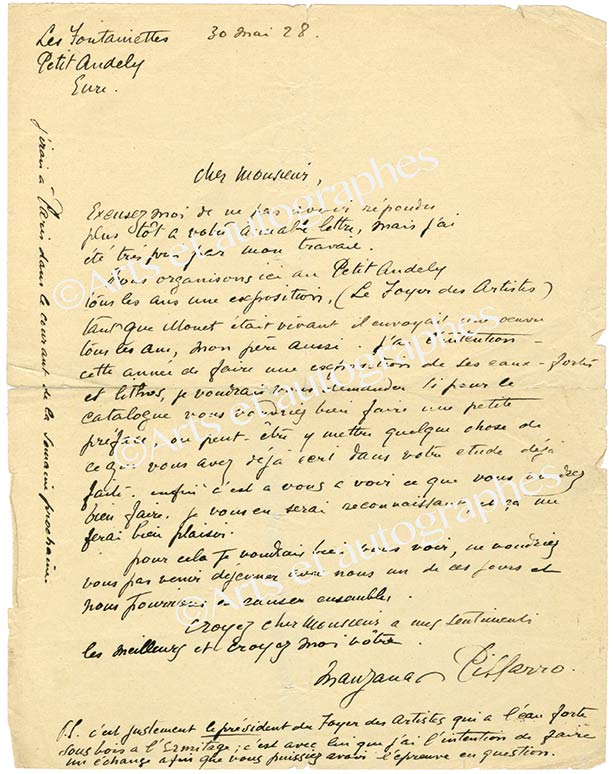 Les Fontainettes
Petit Andely
Eure.
30 mai 28.
cher Monsieur,
Excusez moi de ne pas avoir répondu
plus tôt a votre aimable lettre, mais j'ai
été très pris par mon travail.
Nous organisons ici au Petit Andely
tous les ans une exposition, (Le Foyer des Artistes)
tant que Monet était vivant il envoyait une oeuvre
tous les ans, mon père aussi. j'ai l'intention
cette année de faire une exposition de ses eaux fortes
et lithos, je voudrais vous demander si pour le
catalogue vous voudriez bien faire une petite
préface, ou peut-être y mettre quelque chose de
ce que vous avez déjà écrit dans votre etude déjà
faite. enfin c'est a vous a voir ce que vous voudrez
bien faire. je vous en serai reconnaissant, et ça me
ferai bien plaisir.
pour cela je voudrais bien vous voir, ne voudriez
vous pas venir dejeuner avec nous un de ces jours et
nous pourrions en causer ensemble.
Croyez cher Monsieur a mes sentiments
les meilleurs et croyez moi vôtre.
Manzana Pissarro.
P.S. c'est justement le président du Foyer des Artistes qui a l'eau forte
sous bois a l'Ermitage; c'est avec lui que j'ai l'intention de faire
un échange afin que vous puissiez avoir l'épreuve en question.
j'irai à Paris dans le courant de la semaine prochaine.
©Arts et autographes
©Arts et autographes
©Arts et autographes
©Arts et autographes